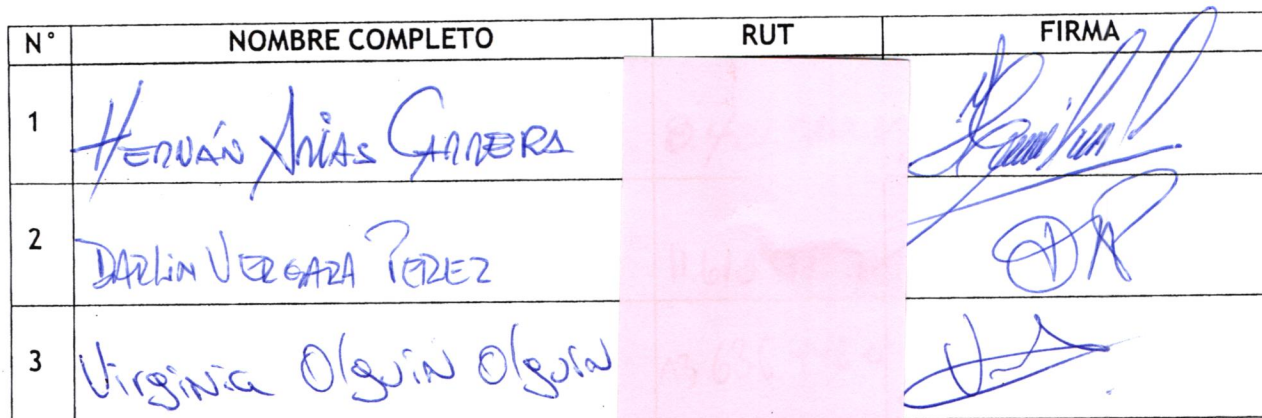 N° NOMBRE COMPLETO RUT FIRMA
1 HERNÁN ARIAS CARRERA
2 DARLIN VERGARA PEREZ
3 Virginia Olguin Olguin